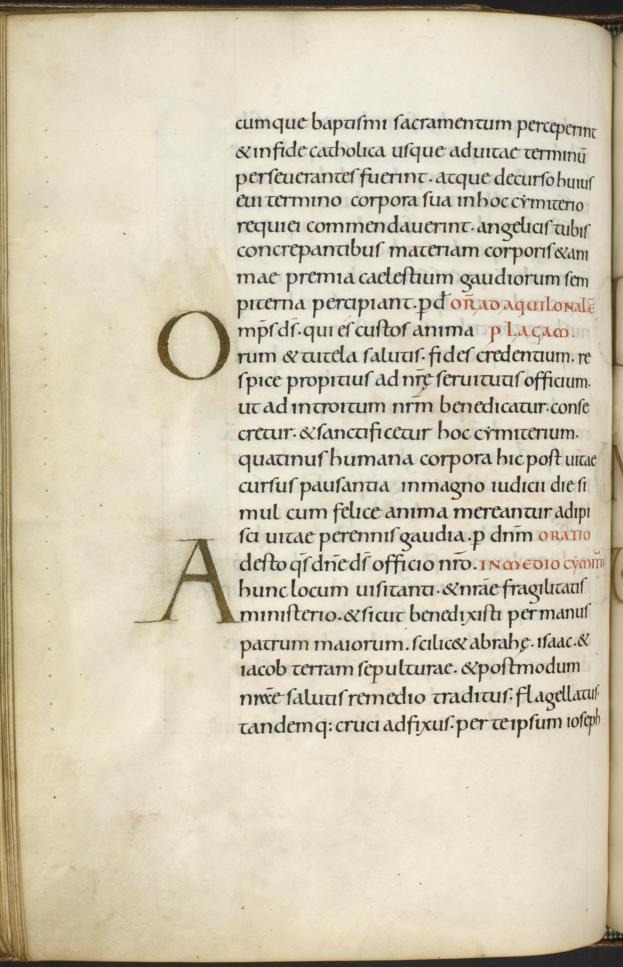 cumque baptismi sacramentum perceperint
& infide catholica usque aduitae terminū
perseuerantes fuerint. atque decurso huius
eui termino corpora sua inhoc cymiterio
requiei commendauerint. angelicis tubis
concrepantibus materiam corporis & ani
mae premia caelestium gaudiorum sem
piterna percipiant. p d̄ OR̄ AD AQUILONALĒ
Omp̄s d̄s. qui es custos anima PLAGAM.
rum & tutela salutis. fides credentium. re
spice propitius ad nr̄ę seruitutis officium.
ut ad introitum nr̄m benedicatur. conse
cretur. & sanctificetur hoc cymiterium.
quatinus humana corpora hic post uitae
cursus pausantia inmagno iudicii die si
mul cum felice anima mereantur adipi
sci uitae perennis gaudia. p dn̄m ORATIO
Adesto q̄s dn̄e d̄s officio nr̄o. IN MEDIO CYMITII
hunc locum uisitanti. & nr̄ae fragilitatis
ministerio. & sicut benedixisti per manus
patrum maiorum. scilic& abrahę. isaac. &
iacob terram sepulturae. & postmodum
salutis remedio traditus. flagellatus.
tandemq: cruci adfixus. per te ipsum ioseph